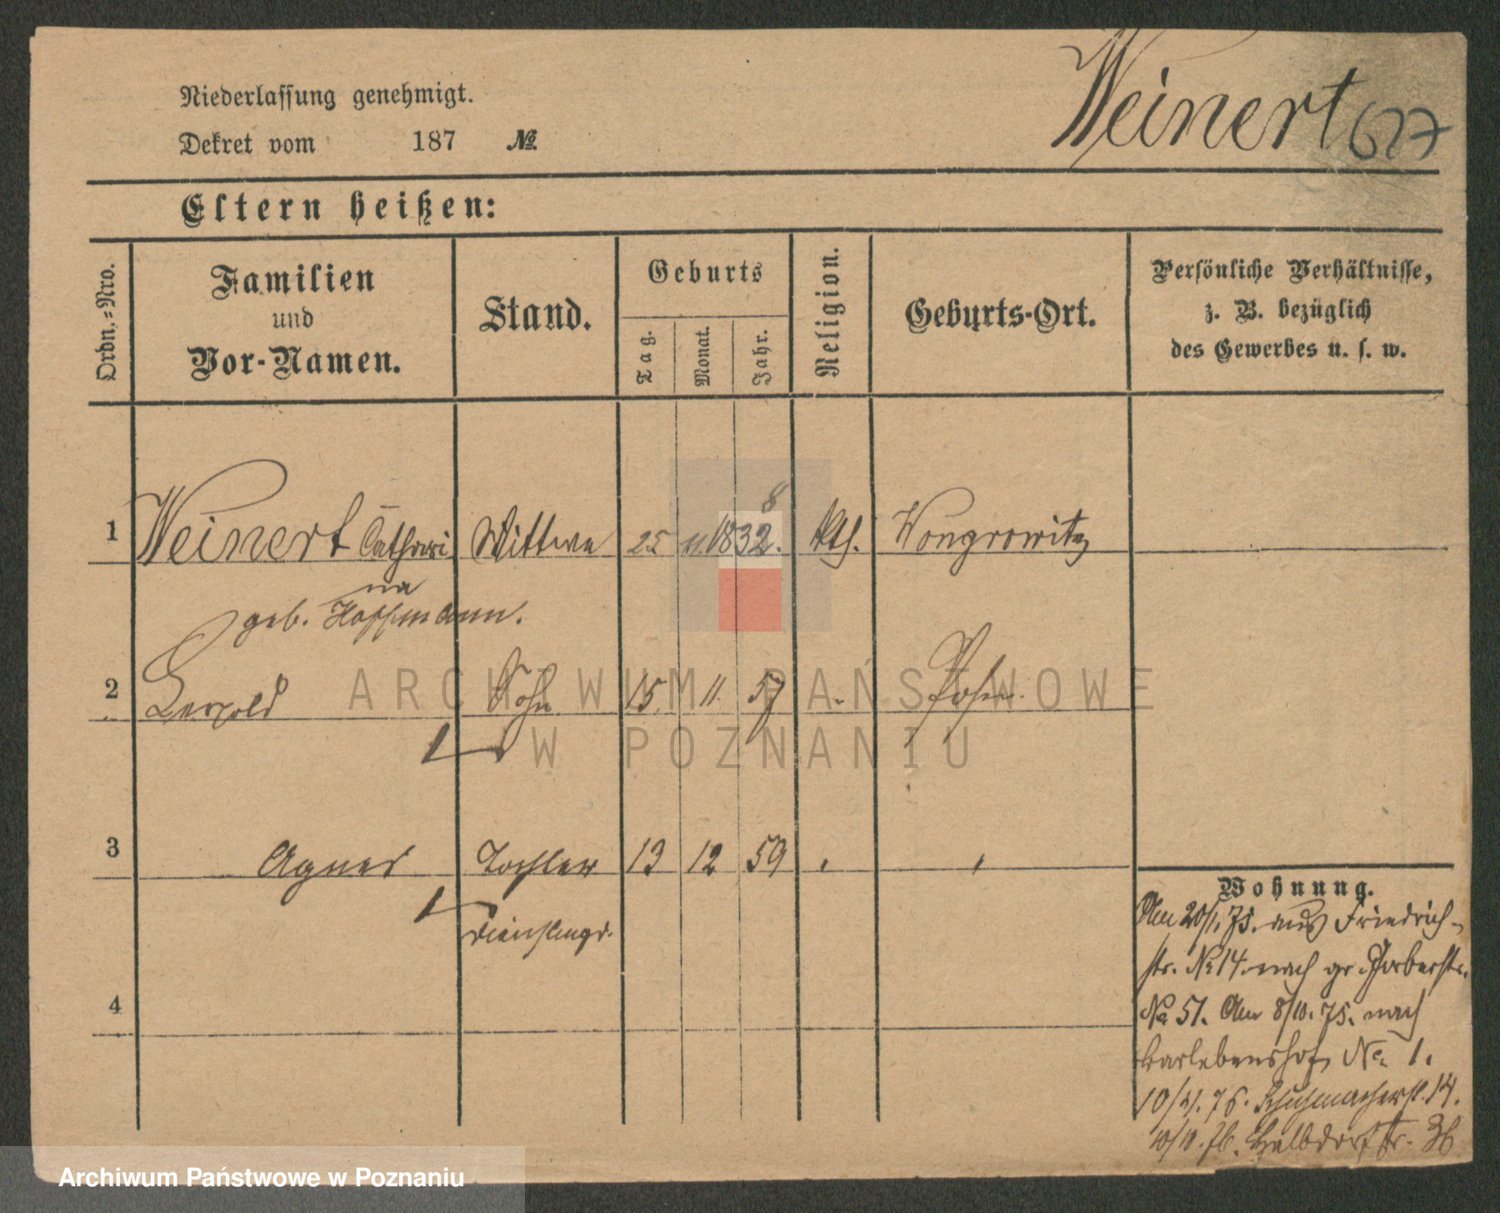 Weinert 627
Niederlassung genehmigt.
Dekret vom 187 №
Eltern heißen:
Ordn.=Nro.
Familien
und
Vor-Namen.
Stand.
Geburts
Tag.
Monat.
Jahr.
Religion.
Geburts-Ort.
Persönliche Verhältnisse,
z. B. bezüglich
des Gewerbes u. s. w.
8
1 Weinert Cathari Wittwe 25 11. 1832. kth. Wongrowitz
na
geb. Hoffmann.
2 Leopold Sohn 15. 11. 57 " Posen.
3 Agnes Tochter 13 12 59 " "
4
Wohnung.
Am 20/1. 75. aus Friedrich-
str. № 14 nach gr. Gerberstr.
№ 51. Am 8/10. 75. nach
Karlebenshof № 1.
10/4. 76. Schuhmacherst. 14.
10/10. 76. Halbdorfstr.
ARCHIWUM PAŃSTWOWE
W POZNANIU
Archiwum Państwowe w Poznaniu